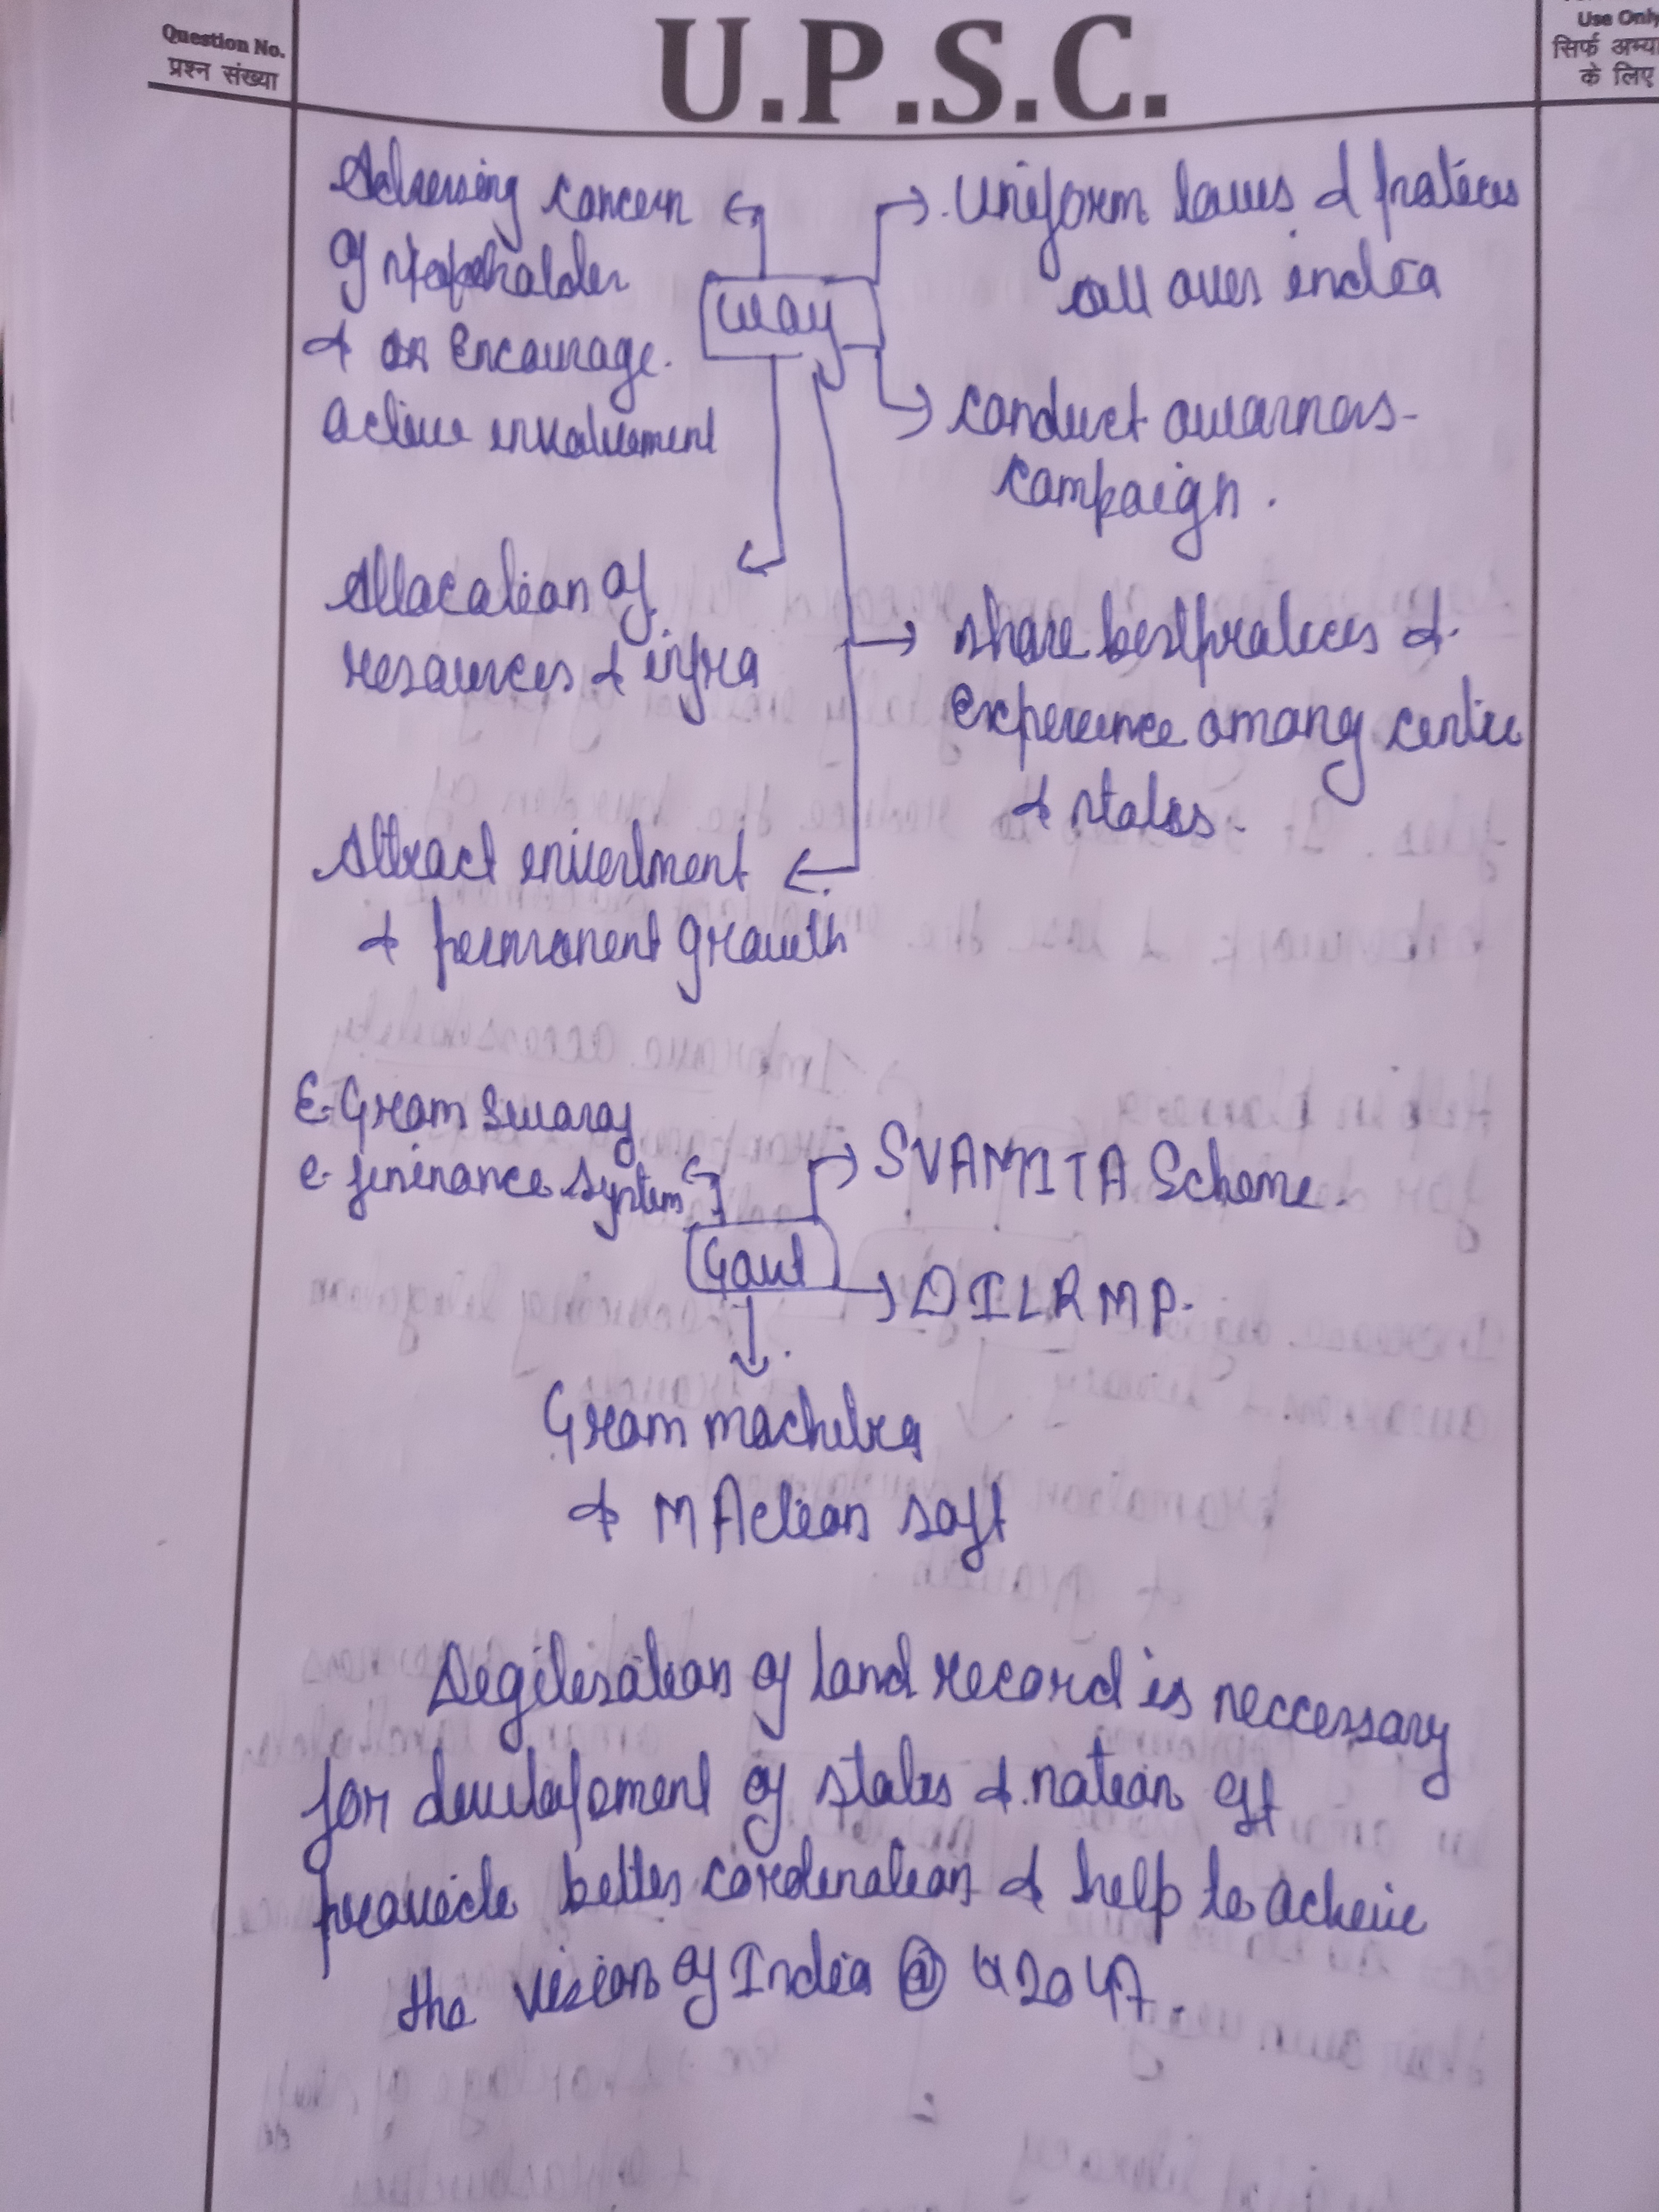 Question No.
प्रश्न संख्या
U.P.S.C.
Use Only
सिर्फ अभ्या
के लिए
Adressing concern
of stakeholder
& Encourage
active involvement
way
Uniform laws & pratices
all over india
conduct awarness
campaign.
Allocation of
resources & infra
share best pratices &
Experience among centre
& states.
Attract investment
& permonent growth
E-Gram Swaraj
e-fininance system
SVAMITA Scheme.
Govt
DILRMP.
Gram machitra
& MAction soft
Digitisation of land record is neccessary
for development of states & nation It
provide better cordination & help to acheive
the vision of India @ 2047.